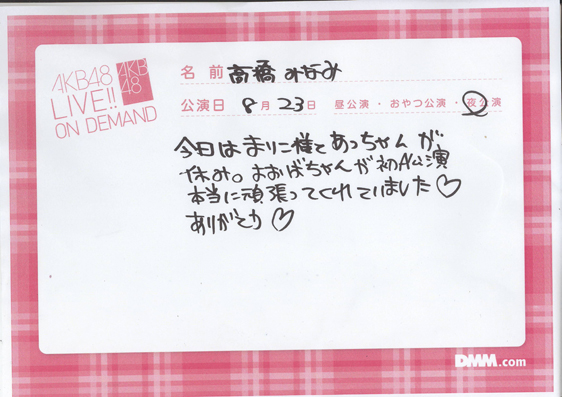 AKB48
LIVE!!
ON DEMAND
AKB
48
名前 高橋みなみ
公演日 8月23日 昼公演・おやつ公演・夜公演
今日はまりこ様とあっちゃんが
休み。まおばちゃんが初A公演
本当に頑張ってくれていました♡
ありがとう♡
DMM.com